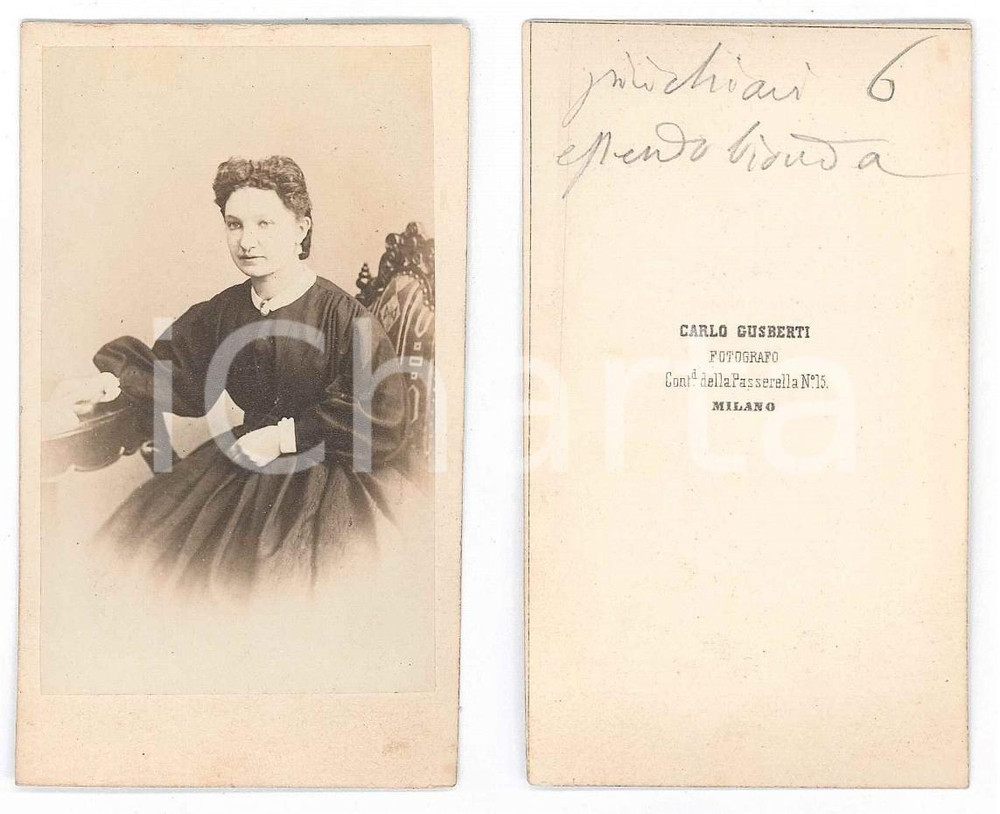 più chiari 6
essendo bionda
CARLO GUSBERTI
FOTOGRAFO
Contᵈ. della Passerella Nº 15.
MILANO
iCharta